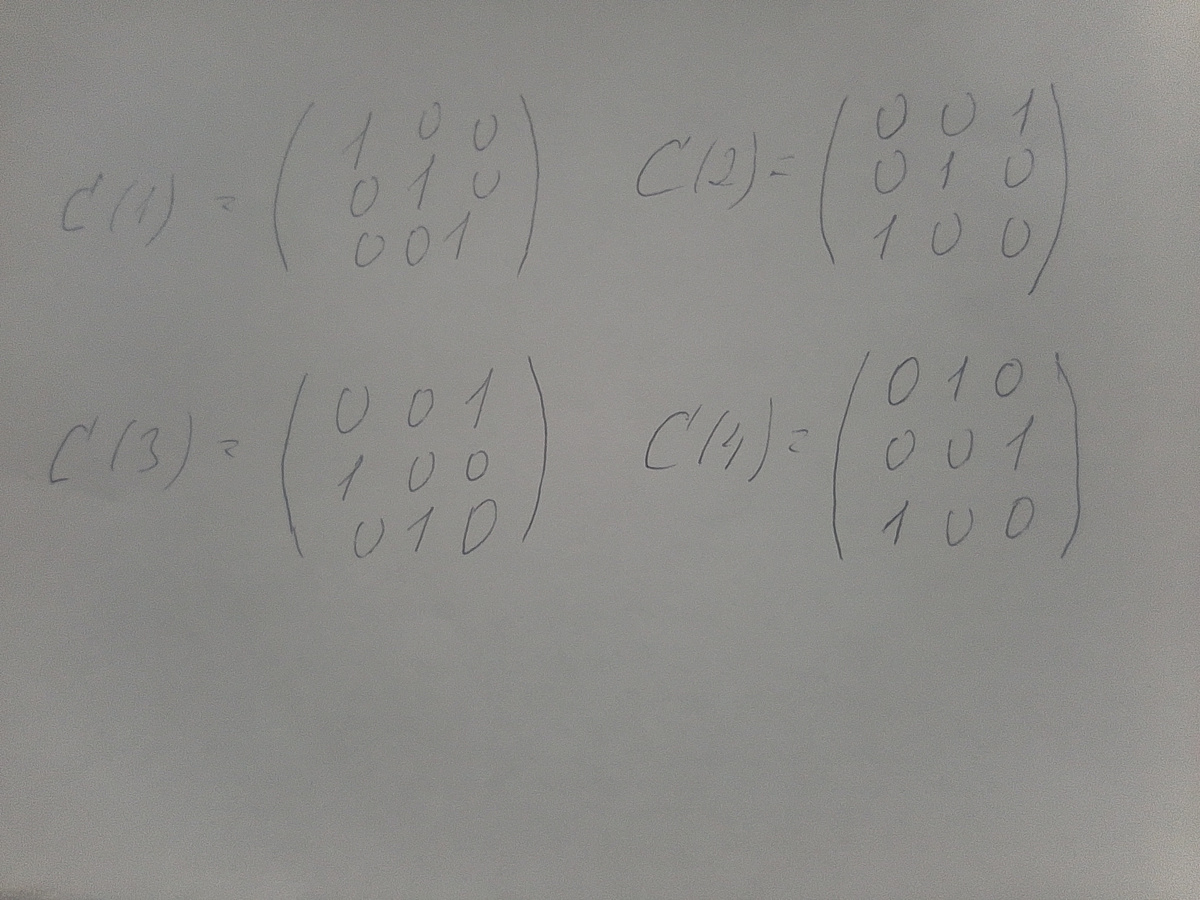 C(1) = ( 1 0 0
0 1 0
0 0 1 )
C(2) = ( 0 0 1
0 1 0
1 0 0 )
C(3) = ( 0 0 1
1 0 0
0 1 0 )
C(4) = ( 0 1 0
0 0 1
1 0 0 )